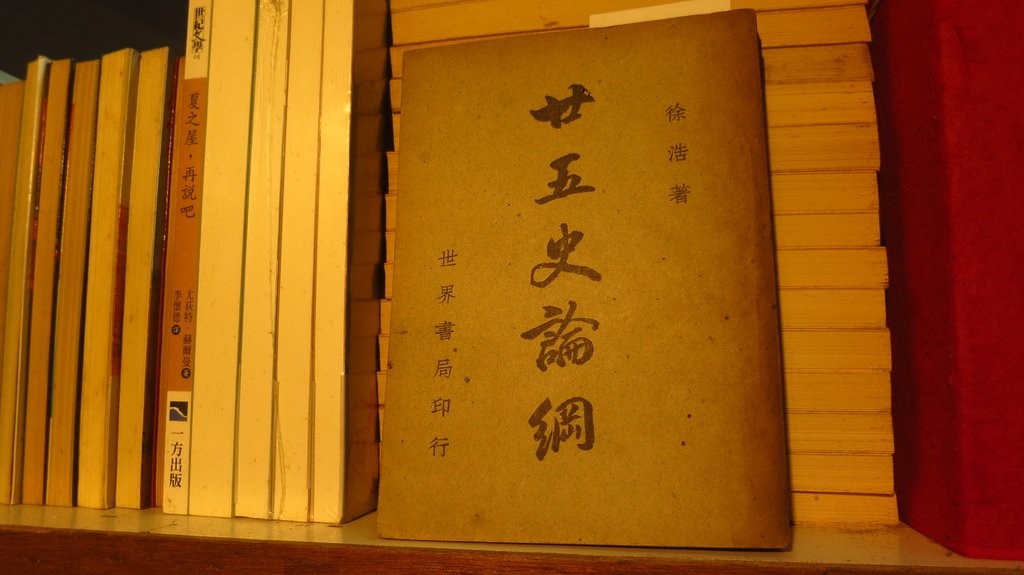 徐浩著
廿五史論綱
世界書局印行
世紀文學
夏之屋，再說吧
尤荻特．赫爾曼著
李懷德譯
一方出版